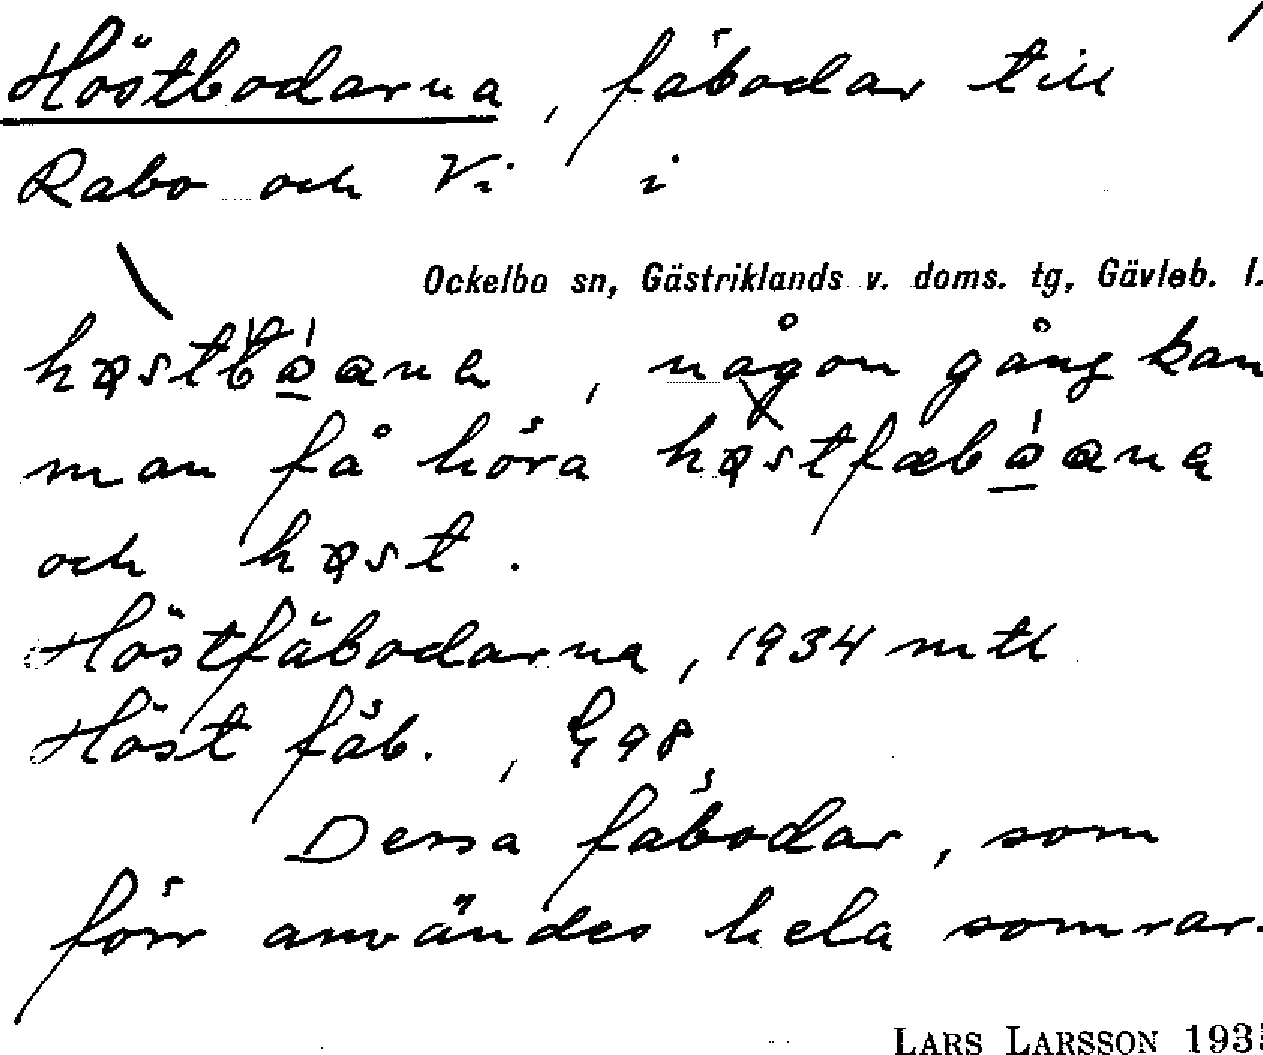 Höstbodarna, fäbodar till
Rabo och Vi i
Ockelbo sn, Gästriklands v. doms. tg, Gävleb. l.
, någon gång kan
man få höra
och
Höstfäbodarna, 1934 mtl
Höst fäb., G 98
Dessa fäbodar, som
förr användes hela somrar.
LARS LARSSON 193